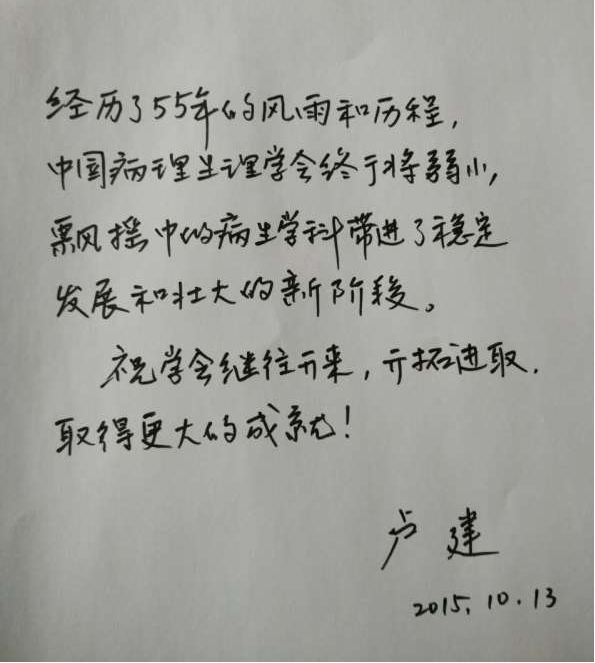 经历了55年的风雨和历程,
中国病理生理学会终于将弱小,
飘摇中的病生学科带进了稳定
发展和壮大的新阶段。
祝学会继往开来,开拓进取,
取得更大的成就!
卢建
2015.10.13